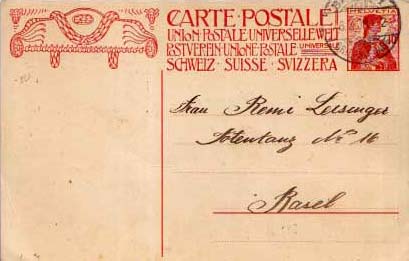 CARTE POSTALE
UNION POSTALE UNIVERSELLE. WELT
POSTVEREIN. UNIONE POSTALE UNIVERSALE
SCHWEIZ SUISSE SVIZZERA
HELVETIA
Frau Remi Leisinger
Totentanz No 16
Basel